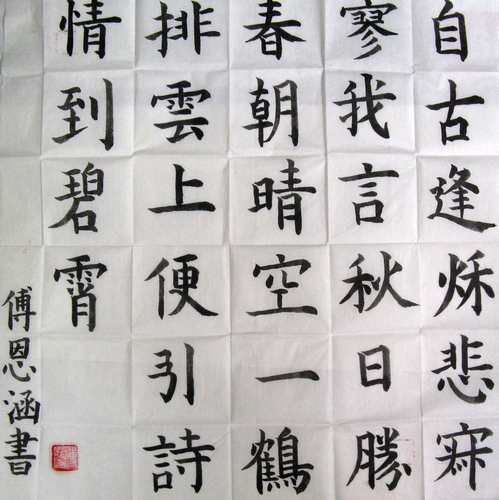 自古逢秌悲寂
寥我言秋日勝
春朝晴空一鶴
排雲上便引詩
情到碧霄
傅恩涵書